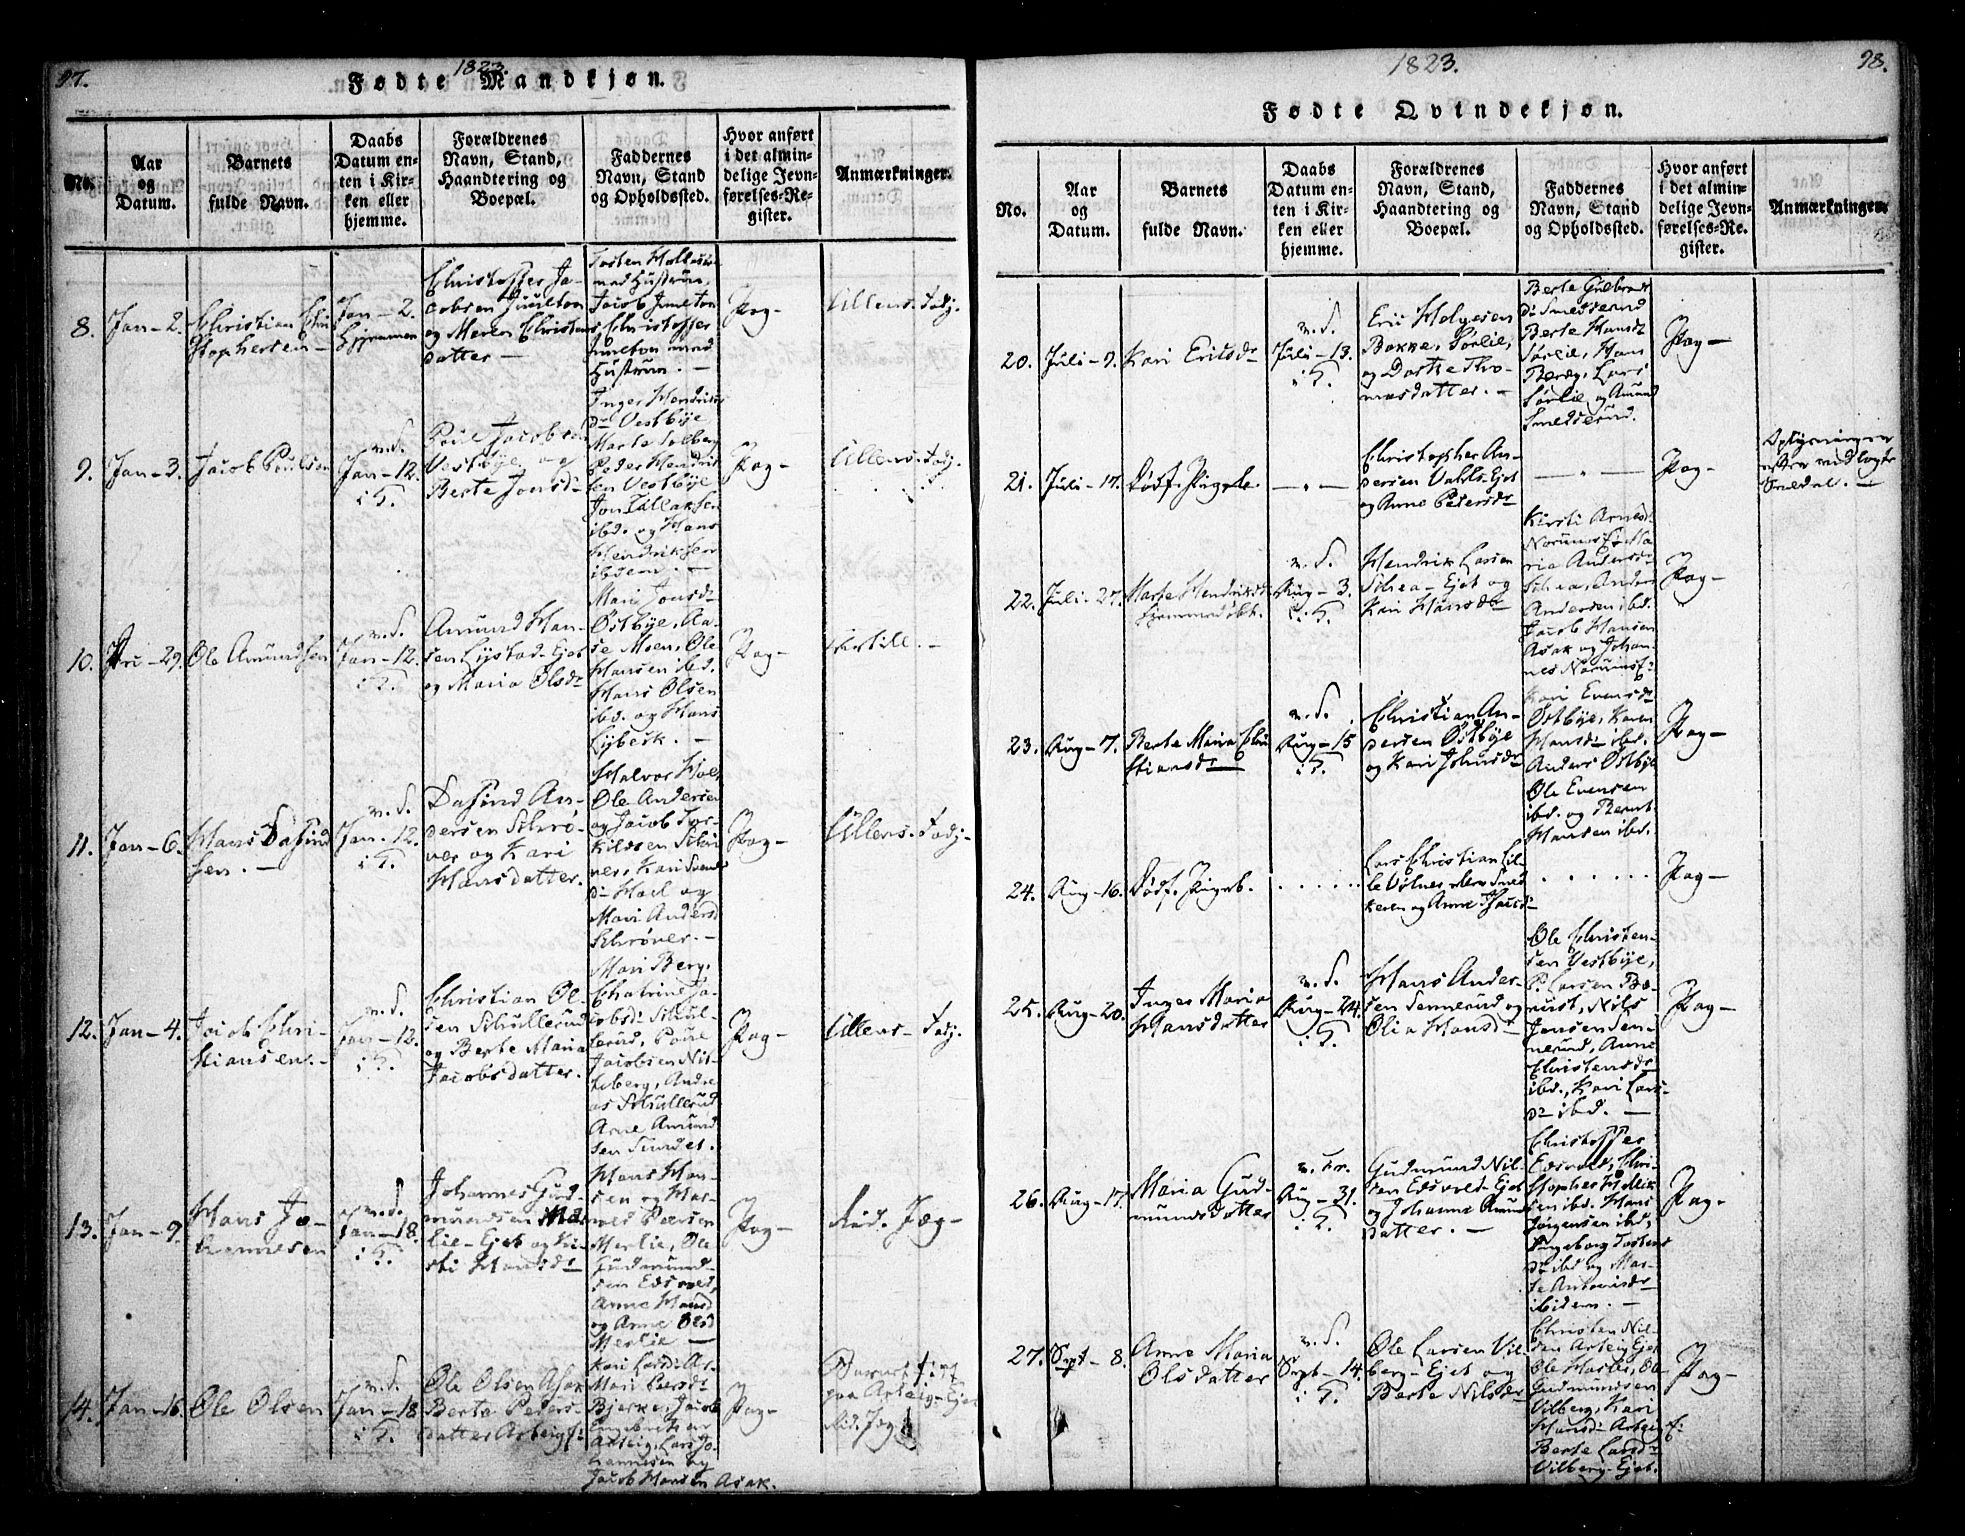 97.
1823.
Fødte Mandkjøn.
No.
Aar
og
Datum.
Barnets
fulde Navn.
Daabs
Datum en-
ten i Kir-
ken eller
hjemme.
Forældrenes
Navn, Stand,
Haandtering og
Boepæl.
Faddernes
Navn, Stand
og Opholdssted.
Hvor anført
i det almin-
delige Jevn-
førelses-Re-
gister.
Anmærkninger.
8.
Jan-2.
Christian Chri
stophersen-
Jan-2.
Hjemmen
Christoffer Ja-
cobsen Juulton
og Maren Christens
datter-
Jacob Juulton
Christoffer
Juulton med
Hustrue.-
Pag-
Ullens. Fadj.
9.
Jan-3.
Jacob Poulsen
n.d.
Jan-12.
i K.
Poul Jacobsen
Vestbÿe og
Berte Jonsdr
Inger Hendriks
dr Vestbÿe
Marte Solberg
Peder Hendrik
sen Vestbÿe
Jon Tollaksen
ibd. og Hans
Hendriksen
ibdem.-
Pag-
Ullens. Fadj.
10.
29.
Ole Amundsen
n.d.
Jan-12.
i K.
Amund Han-
sen Lystad-Ejet
og Maria Olsdr
Mari Jonsdr
Østbÿe, Aa-
se Moen, Ole
Hansen ibd.
Hans Olsen
ibd. og Hans
Lybeck.-
Pag-
11.
Jan-6.
Hans Dafind
sen.-
n.d.
Jan-12.
i K.
Dafind An-
dersen Skrø-
ver og Kari
Hansdatter.
Halvor Hol,
Ole Andersen
og Jacob Tor-
kildsen Skrø-
ver, Kari Svend
dr Hoel og
Mari Andersd
Skrøver.-
Pag-
Ullens. Fadj-
12.
Jan-4.
Jacob Chri-
stiansen.-
n.d.
Jan-12.
i K.
Christian Ol-
sen Skullerud
og Berte Maria
Jacobsdatter.
Mari Berg,
Chatrine Ja-
cobsdr Skul-
lerud, Poul
Jacobsen Nit-
teberg, Andre
as Skullerud
Arne Amund
sen Sundet.
Pag-
Ullens-Fadj.
13.
Jan-9.
Hans Jo-
hannesen
n.d.
Jan-18.
i K.
Johannes Gud-
mundsen Mær-
lie-Ejet og Kir-
sti Hansdr
Hans Han-
sen og Hal-
vor Peersen
Merlie, Ole
Gudmund-
sen Edsvold,
Anne Hansd
og Anne Olsd
Merlie-
Pag-
Rød. Jæg-
14.
Jan-16.
Ole Olsen
n.d.
Jan-18
i K.
Ole Olsen Asak
Berte Peders-
datter Arteig f:
Kari Larsd: As-
Mari Peersdr
Bjerke, Jacob
Engebretsen
Arteig, Lars Jo-
hannesen og
Jacob Hansen Asak.
Pag-
paa Arteig-Ejet
Rød. Jæg
98.
1823.
Fødte Qvindekjøn.
No.
Aar
og
Datum.
Barnets
fulde Navn.
Daabs
Datum en-
ten i Kir-
ken eller
hjemme.
Forældrenes
Navn, Stand,
Haandtering og
Boepæl.
Faddernes
Navn, Stand
og Opholdssted.
Hvor anført
i det almin-
delige Jevn-
førelses-Re-
gister.
Anmærkninger.
20.
Juli-9.
Kari Ericsdr
n.d.
Juli-13.
i K.
Eric Holgesen
Bakke, Sørlie,
og Dorthe Tho-
masdatter.-
Berte Gulbrands
dr Smedserud
Berte Hansdr
Sørlie, Hans
Berg, Lars
Sørlie og Amund
Smedserud.
Pag-
21.
Juli-17.
Dødf. Pigeb.
-"-
Christopher An-
dersen Vahls-Ejet
og Anne Pedersdr
-"-
Pag-
Oplysningen
22.
Juli-27.
Marte Hendriksdr
hjemmedøbt.
n.d.
Aug-3.
i K.
Hendrik Larsen
Skea-Ejet og
Kari Hansdr
Kirsti Arnesdr
ria Andersdr
Skea, Anders
Andersen ibd.
Jacob Hansen
Asak og Johan-
Pag-
23.
Aug-7.
Berte Maria Chri
stiansdr
n.d.
Aug-15.
i K.
Christian An-
dersen Østbÿe
og Kari Johnsdr
Kari Evensdr
Østbÿe, Karen
Hansdr ibd.
Anders Østbÿe
Ole Evensen
ibd. og Bernt
Hansen ibd.
Pag-
24.
Aug-16.
Dødf. Pigeb.
......
Lars Christian Lil-
le Vølner
og Anne
......
Pag-
25.
Aug-20.
Inger Maria
Hansdatter
n.d.
Aug-24.
i K.
Hans Ander-
sen Sennerud og
Olia Hansdr
Ole Christen-
sen Vestbÿe,
P. Larsen
Nils
Jensen Sen-
nerud, Anne
Christensdr
ibd., Kari Lars-
dr ibd.-
Pag-
26.
Aug-17.
Maria Gud-
mundsdatter
Aug-31.
i K.
Gudmund Nil-
sen Edsvold-Ejet
og Johanne Knuds
datter.-
Christoffer
Edsvold, Chri-
stopher Hendrik
sen ibd. Hans
Jørgensen ibd,
Ingeborg Torstens
dr ibd og Mar-
te Antonisdr
ibidem.-
Pag-
27.
Sept-8.
Anne Maria
Olsdatter
n.d.
Sept-14.
i K.
Ole Larsen Vil-
berg-Ejet og
Berte Nilsdr
Christen Nil-
sen Arteig Ejet
Ole
Gudmundsen
Vilberg, Kari
Hansdr Arteig f:
Berte Larsdr
Vilberg-Ejet.
Pag-